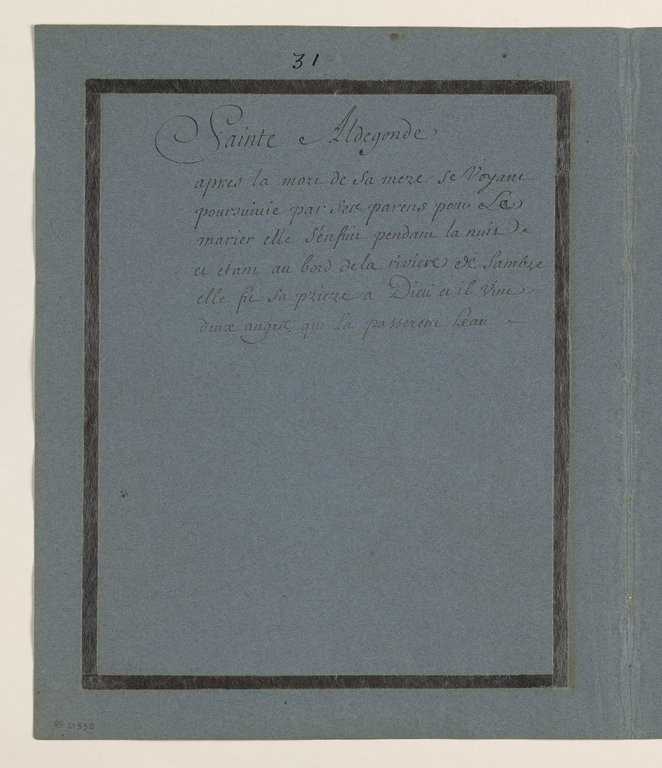 31
Sainte Aldegonde
apres la mort de sa mere se Voyant
poursuivie par ses parens pour La
marier elle s'enfuit pendant la nuit
et etant au bord de la riviere de Sambre
elle fit sa priere a Dieu et il vint
deux anges qui la passerent Leau
RF 41390